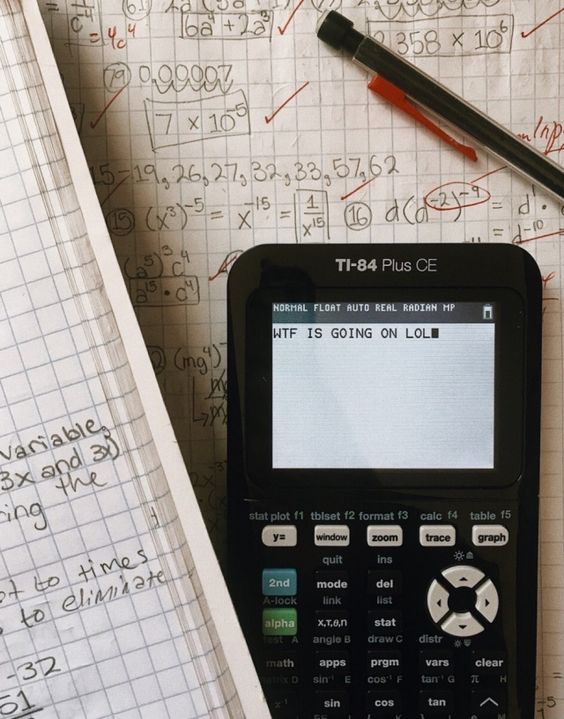 6a⁴ + 2a
= 4c⁴
2.358 × 10⁶
79 0.00007
7 × 10⁻⁵
15-19, 26, 27, 32, 33, 57, 62
15 (x³)⁻⁵ = x⁻¹⁵ = 1/x¹⁵ 16 d(d⁻²)⁻⁹ = d¹ ·
d⁻¹⁰
(a⁵)³ c⁴
a¹⁵ · c⁴
(mg⁴)
variable
(3x and 3x)
the
to times
to eliminate
-32
51
TI-84 Plus CE
NORMAL FLOAT AUTO REAL RADIAN MP
WTF IS GOING ON LOL
stat plot f1 tblset f2 format f3 calc f4 table f5
y= window zoom trace graph
quit ins
2nd mode del
A-lock link list
alpha X,T,θ,n stat
test A angle B draw C distr
math apps prgm vars clear
matrix D sin⁻¹ E cos⁻¹ F tan⁻¹ G π H
x⁻¹ sin cos tan ^